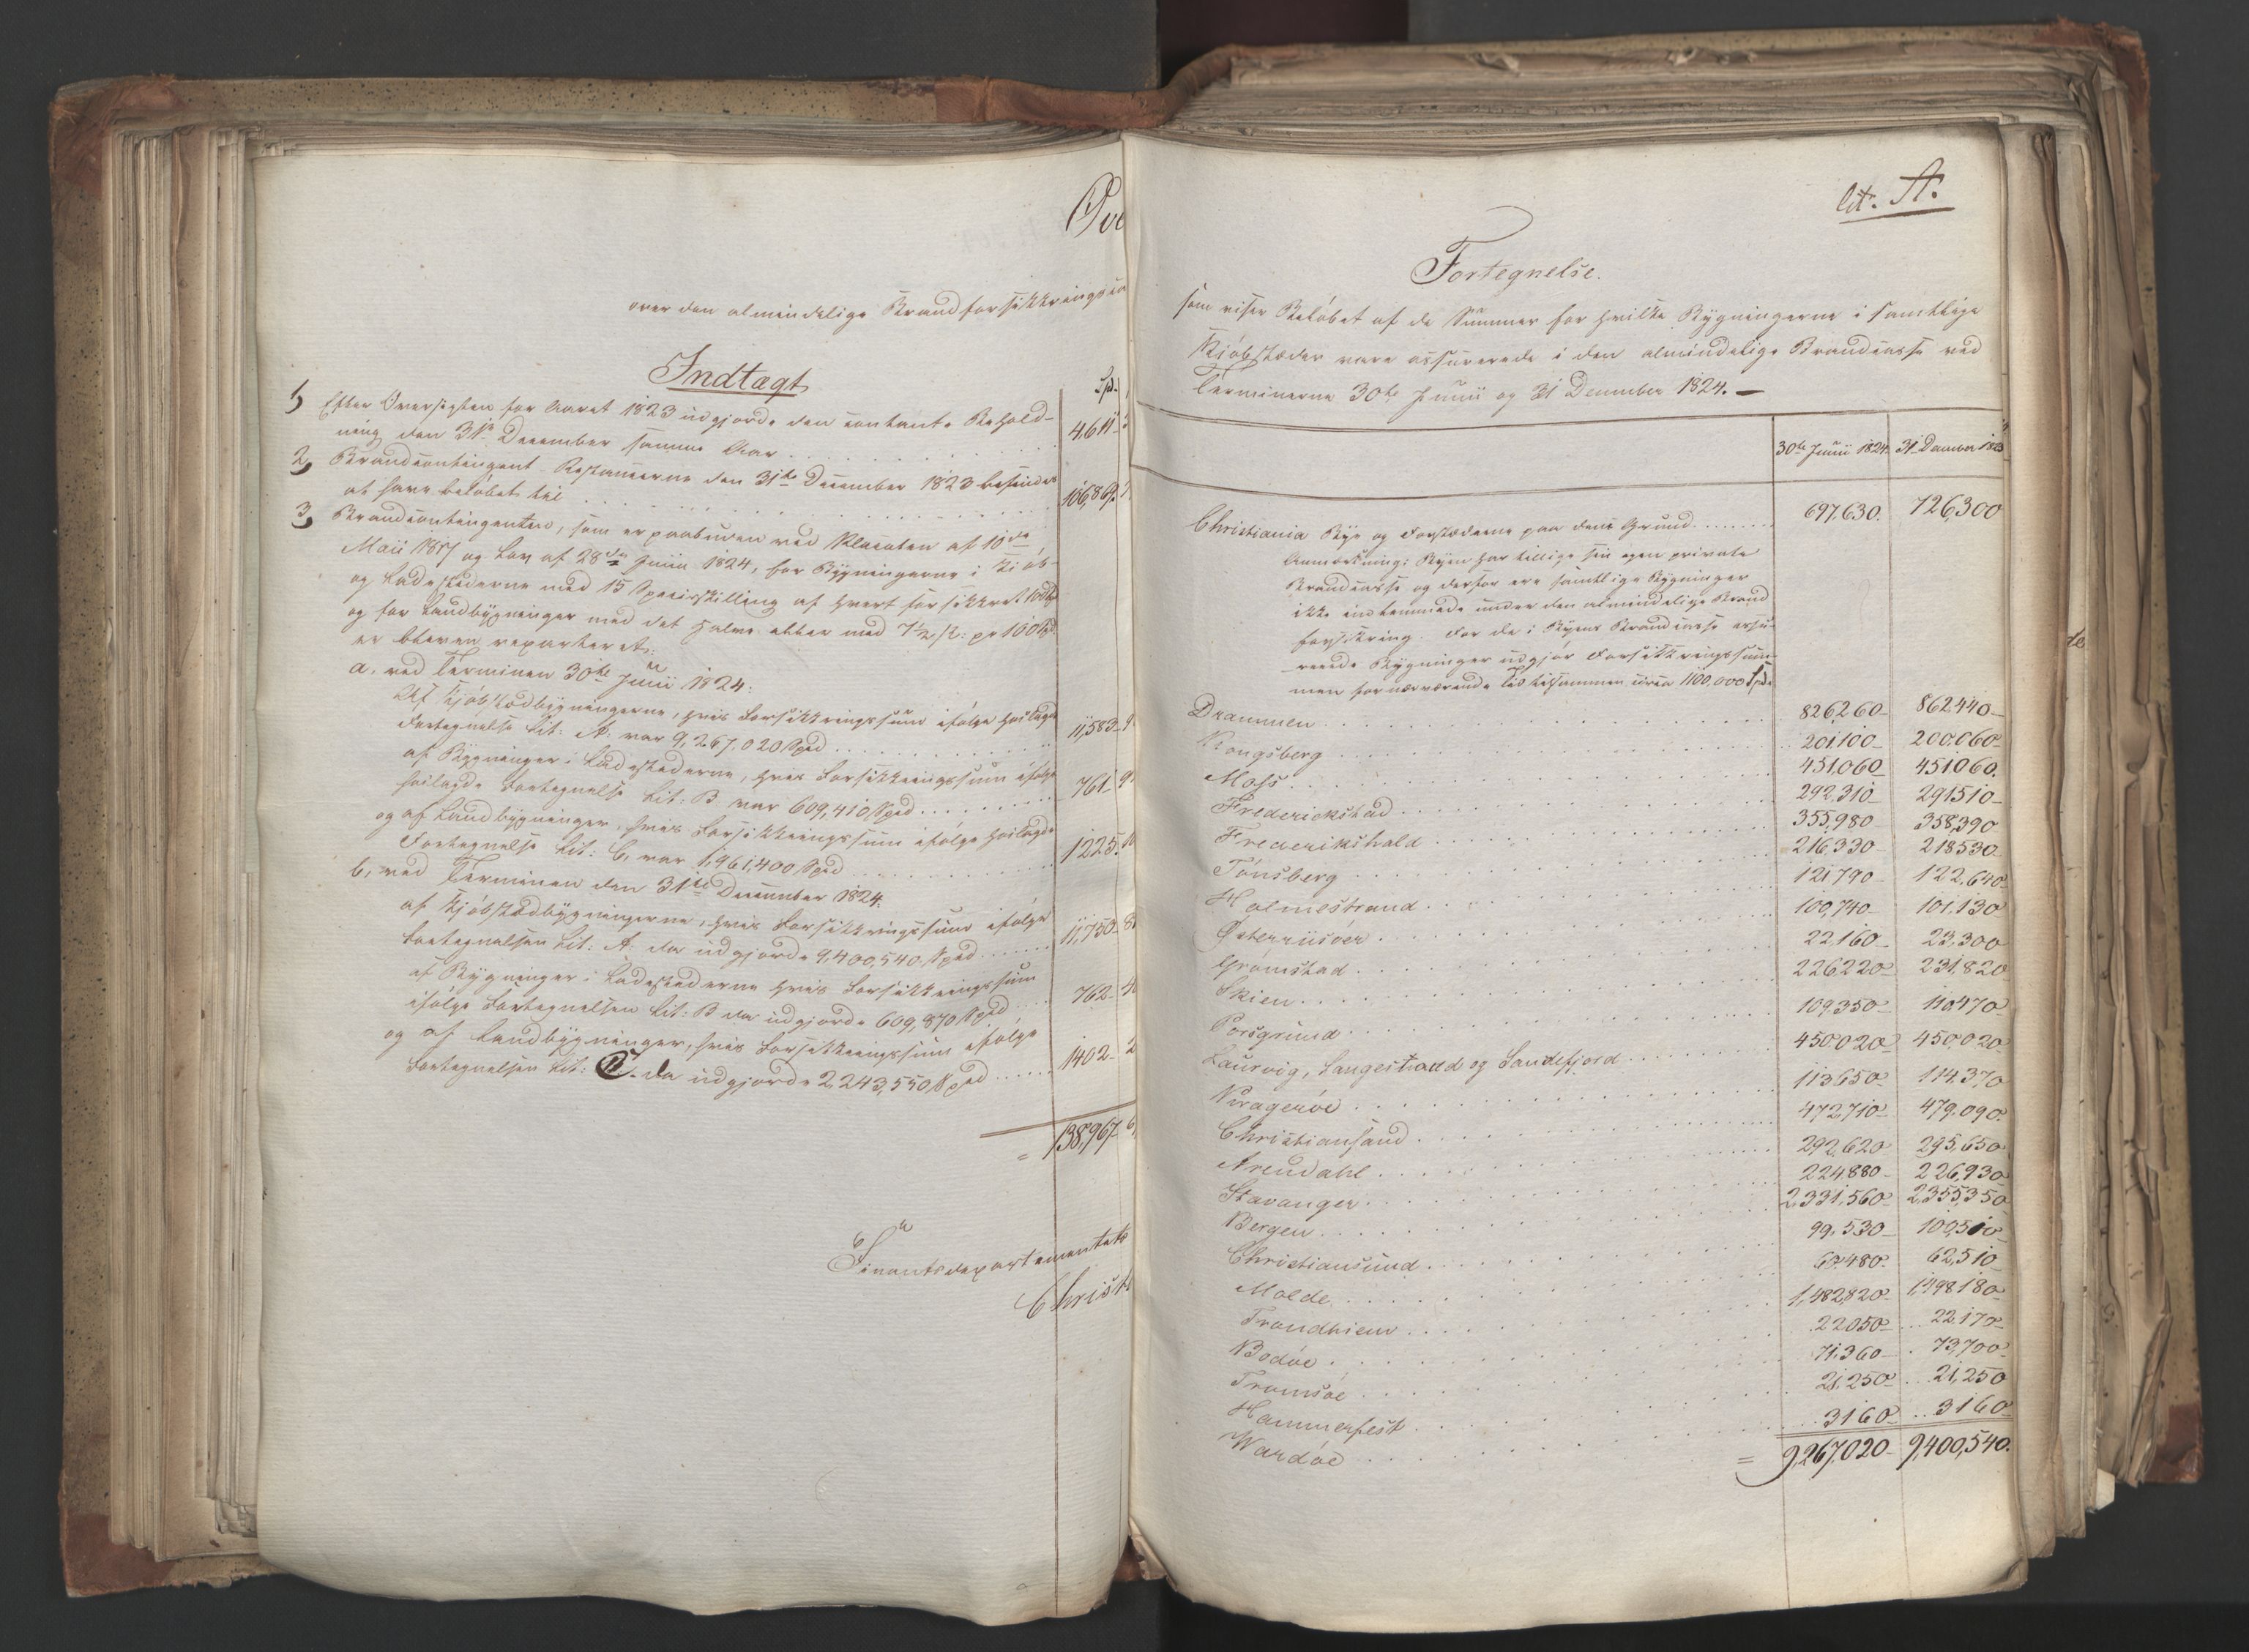 Ove
over den almindelige Brandforsikkrings
Indtægt
Spd.
1) Efter Oversigten for Aaret 1823 udgjorde den contante Behold-
ning den 31te December samme Aar . . . 4,611
2) Brandcontingent Restancerne den 31te December 1823 befindes
at have beløbet til . . . 106,869.
3) Brandcontingenten, som er paabuden ved Placaten af 10de
Maii 1817 og Lov af 28de Junii 1824, for Bygningerne i Kiøb-
og Ladestederne med 15 Speciesskilling af hvert forsikkret 100 Spd
og for Landbygninger med det halve eller med 7½ s: pr 100 Spd
er bleven reparteret:
a. ved Terminen 30te Junii 1824:
Af Kjøbstædbygningerne, hvis Forsikkringssum ifølge hoslagde
Fortegnelse Lit: A: var 9,267,020 Spd . . . 11,583
af Bygninger i Ladestederne, hvis Forsikkringssum ifølge
hoslagde Fortegnelse Lit: B var 609,410 Spd . . . 761
og af Landbygninger, hvis Forsikkringssum ifølge hoslagde
Fortegnelse Lit: C, var 1,961,400 Spd . . . 1225.
b, ved Terminen den 31te December 1824:
af Kjøbstædbygningerne, hvis Forsikkringssum ifølge
Fortegnelsen Lit: A: da udgjorde 9,400,540 Spd . . . 11,750
af Bygninger i Ladestederne hvis Forsikkringssum
ifølge Fortegnelsen Lit: B da udgjorde 609,870 Spd . . . 762
og af Landbygninger, hvis Forsikkringssum ifølge
Fortegnelsen Lit: C. da udgjorde 2,243,550 Spd . . . 1402
= 138,967
Finantsdepartementets
Christ
Litr. A.
Fortegnelse.
som viser Beløbet af de Summer for hvilke Bygningerne i samtlige
Kjøbstæder vare assurerede i den almindelige Brandcasse ved
Terminerne 30te Junii og 31 December 1824. —
30te Junii 1824. 31 December 18
Christiania Bye og Forstæderne paa dens Grund . . . 697,630. 726,300
Anmærkning: Byen har tillige sin egen private
Brandcasse og derfor ere samtlige Bygninger
ikke indlemmede under den almindelige Brand
forsikring. For de i Byens Brandcasse assu-
rerede Bygninger udgjør Forsikkringssum-
men for nærværende Tid tilsammen circa 1,100,000 Spd.
Drammen . . . 826,260 862,440
Kongsberg . . . 201,100 200,060
Moss . . . 451,060 451,060.
Frederickstad . . . 292,310 291,510
Frederikshald . . . 355,980 358,390
Tønsberg . . . 216,330 218,530
Holmestrand . . . 121,790 122,640
Østerriisøer . . . 100,740 101,130
Grømstad . . . 22,160 23,300
Skien . . . 226,220 231,820
Porsgrund . . . 109,350 110,470
Laurvig, Langestrand og Sandefjord . . . 450,020 450,020
Kragerøe . . . 113,650 114,370
Christiansand . . . 472,710 479,090.
Arendahl . . . 292,620 295,650
Stavanger . . . 224,880 226,930
Bergen . . . 2,331,560 2,355,350
Christiansund . . . 99,530 100,510
Molde . . . 60,480 62,510
Trondhiem . . . 1,482,820 1,498,180
Bodøe . . . 22,050 22,170
Tromsøe . . . 71,360 73,700
Hammerfest . . . 21,250 21,250
Wardøe . . . 3160 3160
= 9,267,020 9,400,540.